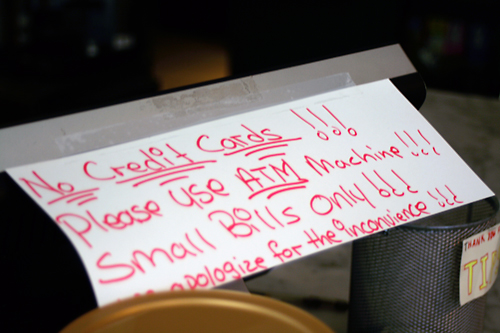 No Credit Cards !!!
Please Use ATM Machine!!!
Small Bills Only !!!
apologize for the inconvience !!!
THANK YOU
TI